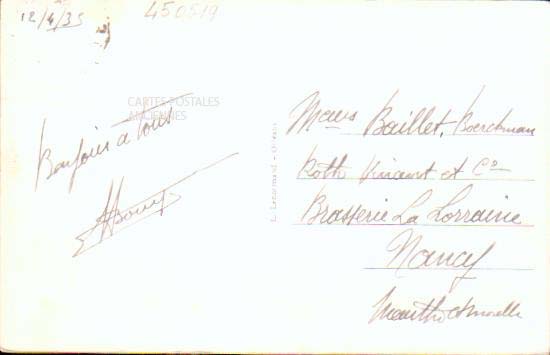 12/4/35
450519
CARTES POSTALES
ANCIENNES
Bonjour à tous
L. Lenormand - Orléans
Baillet, Boerckman
Roth Vincent et Cie
Brasserie La Lorraine
Nancy
Meurthe & Moselle